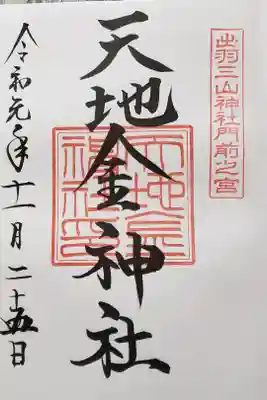 出羽三山神社門前之宮
天地金神社
天地金神社印
令和元年十一月二十五日